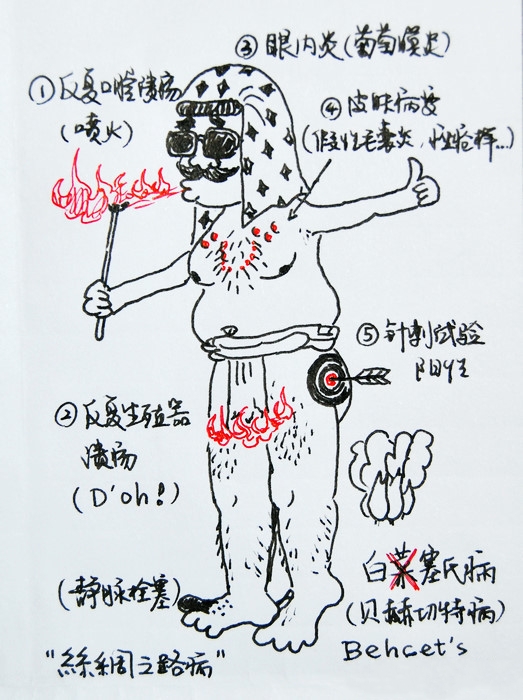 ① 反复口腔溃疡
(喷火)
② 反复生殖器
溃疡
(D'oh!)
③ 眼内炎(葡萄膜炎)
④ 皮肤病变
(假性毛囊炎,痤疮样...)
⑤ 针刺试验
阳性
(静脉栓塞)
"絲綢之路病"
白菜塞氏病
(贝赫切特病)
Behcet's